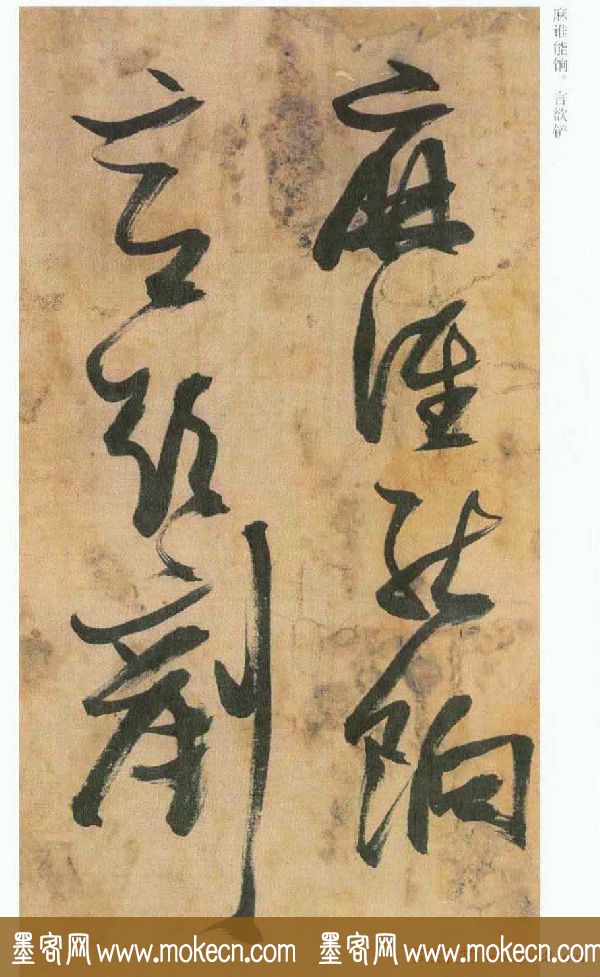 麻谁能饷。言欲铲
麻誰能餉
言欲剷
墨客网 www.mokecn.com 墨客网 www.mokecn.com